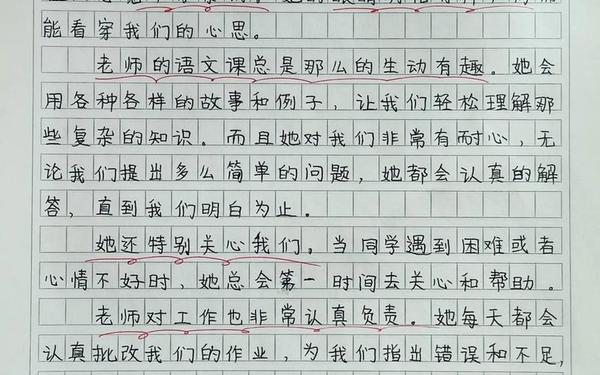 能看穿我们的心思。
老师的语文课总是那么的生动有趣。她会
用各种各样的故事和例子，让我们轻松理解那
些复杂的知识。而且她对我们非常有耐心，无
论我们提出多么简单的问题，她都会认真的解
答，直到我们明白为止。
她还特别关心我们，当同学遇到困难或者
心情不好时，她总会第一时间去关心和帮助。
老师对工作也非常认真负责。她每天都会
认真批改我们的作业，为我们指出错误和不足，